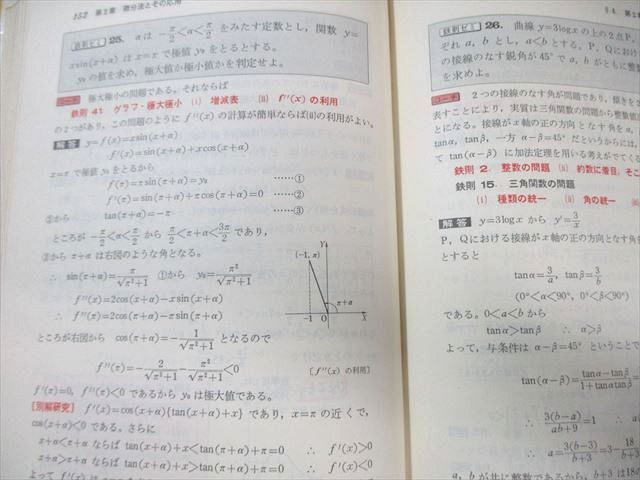 152 第2章 微分法とその応用
鉄則ゼミ 25. αは −π/2<α<π/2 をみたす定数とし，関数 y=
xsin(x+α) は x=π で極値 y₀ をとるとする。
y₀ の値を求め，極大値か極小値かを判定せよ。
コーチ 極大極小の問題である。それならば
鉄則 41 グラフ・極大極小 (i) 増減表 (ii) f″(x) の利用
の2つがあり，この問題のように f″(x) の計算が簡単ならば(ii)の利用がよい。
解答 y=f(x)=xsin(x+α)
f′(x)=sin(x+α)+xcos(x+α)
x=π で極値 y₀ をとるから
f(π)=πsin(π+α)=y₀ ……①
f′(π)=sin(π+α)+πcos(π+α)=0 ……②
②から tan(π+α)=−π ……③
ところが −π/2<α<π/2 から π/2<π+α<3π/2 であり，
③から π+α は右図のような角となる。
∴ sin(π+α)=π/√(π²+1) ①から y₀=π²/√(π²+1)
f″(x)=2cos(x+α)−xsin(x+α)
∴ f″(π)=2cos(π+α)−πsin(π+α)
ところが右図から cos(π+α)=−1/√(π²+1) となるので
f″(π)=−2/√(π²+1)−π²/√(π²+1)<0
f′(π)=0, f″(π)<0 であるから y₀ は極大値である。
(−1, π)
Y
π+α
−1 0 X
〔f″(x) の利用〕
[別解研究] f′(x)=cos(x+α){tan(x+α)+x} であり，x=π の近くで，
cos(x+α)<0 である。さらに
x+α<π+α ならば tan(x+α)+x<tan(π+α)+π=0 ∴ f′(x)>0
x+α>π+α ならば tan(x+α)+x>tan(π+α)+π=0 ∴ f′(x)<0
§4.
鉄則ゼミ 26. 曲線 y=3logx の上の2点P,
ぞれ a, b とし，a<b とする。P, Qにおけ
の接線のなす鋭角が 45° で a, b がともに整数
を求めよ。
コーチ 2つの接線のなす角が問題であり，傾きを
表すことにより，実質は三角関数の問題から整数値
とになる。接線がx軸の正の方向となす角を α,
tanα, tanβ, 一方 α−β=45° だというからには，
て tan(α−β) に加法定理を用いる考えがでてくる
鉄則 2. 整数の問題 (ii) 約数に着目，そこ
鉄則 15. 三角関数の問題
(i) 種類の統一 (ii) 角の統一
解答 y=3logx から y′=3/x
P, Qにおける接線がx軸の正の方向となす角を
とすると
tanα=3/a, tanβ=3/b
(0°<α<90°, 0°<β<90°)
である。0<a<b から
tanα>tanβ ∴ α>β
よって，与条件は α−β=45° ということで
tan(α−β)=tanα−tanβ/1+tanαtanβ
∴ 3(b−a)/ab+9=1 ∴
∴ a=3(b−3)/b+3=3−18/b+3
a, b が共に整数であるから，b+3 は18の